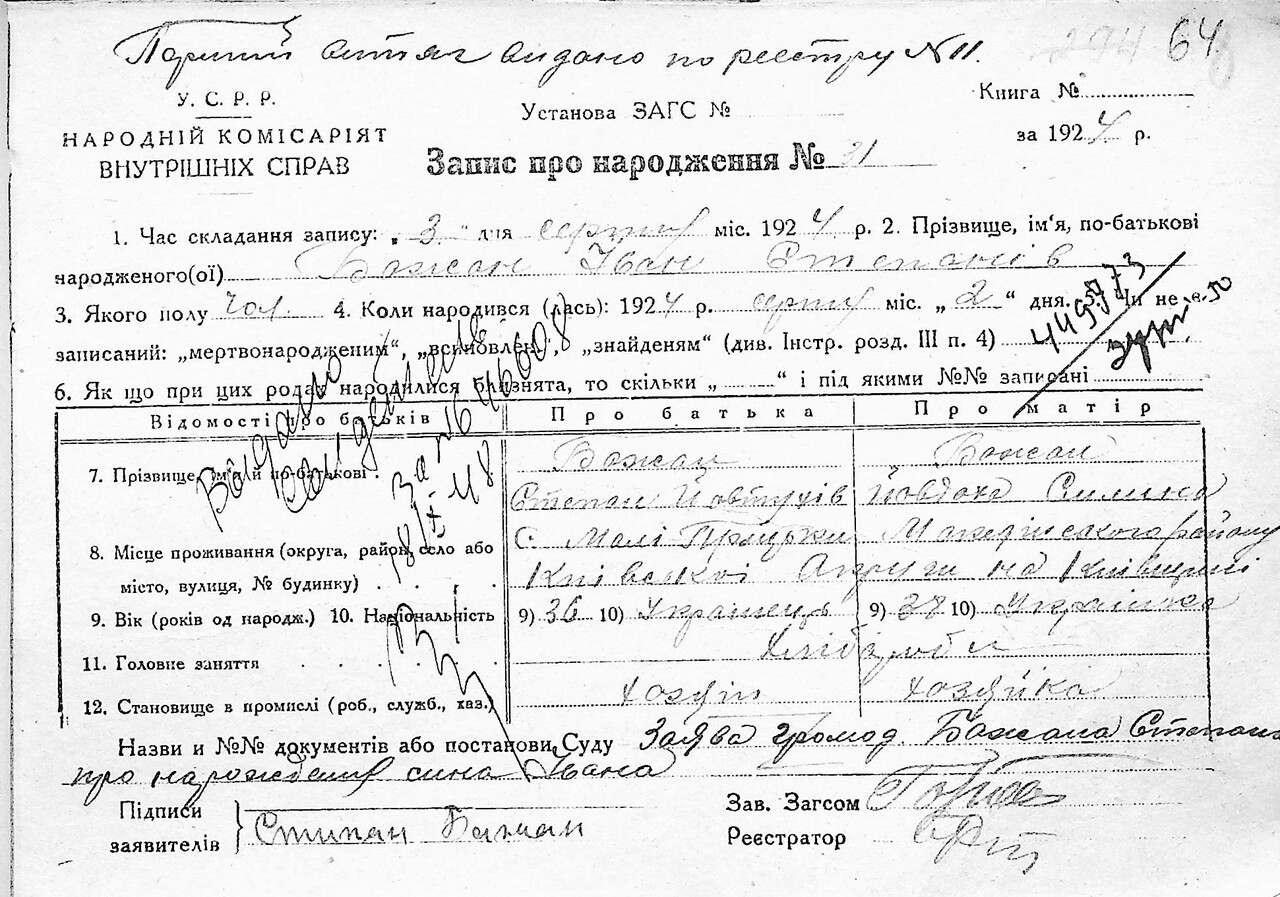 Перший витяг видано по реєстру № 11.
294 64
У. С. Р. Р.
НАРОДНІЙ КОМІСАРІЯТ
ВНУТРІШНІХ СПРАВ
Установа ЗАГС №
Книга №
за 1924 р.
Запис про народження № 31
1. Час складання запису: „3“ дня серпня міс. 1924 р. 2. Прізвище, ім'я, по-батькові
народженого(ої) Бажан Іван Степанів
3. Якого полу чол. 4. Коли народився (лась): 1924 р. серпня міс. „2“ дня. 5. Чи не є
записаний: „мертвонародженим“, „всиновлен.“, „знайденям“ (див. Інстр. розд. III п. 4)
6. Як що при цих родах народилися близнята, то скільки „ “ і під якими №№ записані
Відомості про батьків Про батька Про матір
7. Прізвище, ім'я й по-батькові Бажан Бажан
Степан Йовтухів Йовдоха
8. Місце проживання (округа, район, село або с. Малі Прицьки району
місто, вулиця, № будинку) Київської Округи на Київщині
9. Вік (років од народж.) 10. Національність 9) 36 10) Українець 9) 38 10) Українка
11. Головне заняття Хлібороби
12. Становище в промислі (роб., служб., хаз.) хозяїн хозяйка
Назви и №№ документів або постанови Суду Заява громад. Бажана Степана
про нарождення сина Івана
Підписи
заявителів
Степан Бажан
Зав. Загсом
Реєстратор
Видано
за № 1646608
18/IX-48